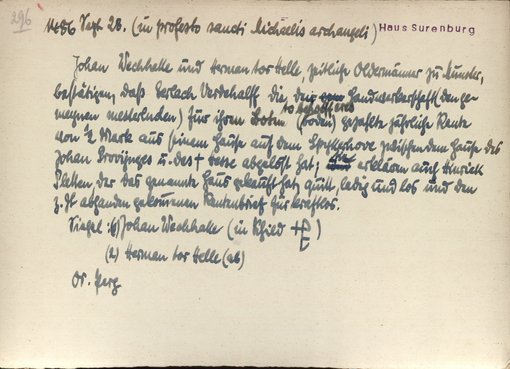 296
1486 Sept 28. (in profesto sancti Michaelis archangeli) Haus Surenburg
Johan Wechhalle und Herman tor Helle, zeitliche Oldermänner zu Munster,
bestätigen, daß Gerlach Verdehalff die Handwerkerschaft (den ge-
meynen mesterluden) für ihren to behoff eres (boden) gezahlte jährliche Rente
von ½ Mark aus (einem Hause auf dem zwischen dem Hause des
Johan und des abgelöst hat; sie erklären auch Hinrick
Platten, der das genannte Haus gekauft hat, quitt, ledig und los und den
z. Zt abhanden gekommenen Rentenbrief für kraftlos.
Siegel: 1) Johan Wechhalle (in Schild )
(2) Herman tor Helle (ab)
Or. Perg